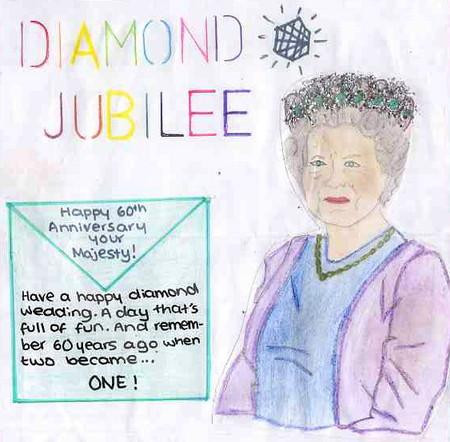 DIAMOND
JUBILEE
Happy 60th
Anniversary
your
Majesty!
Have a happy diamond
wedding. A day that's
full of fun. And remem-
ber 60 years ago when
two became...
ONE!